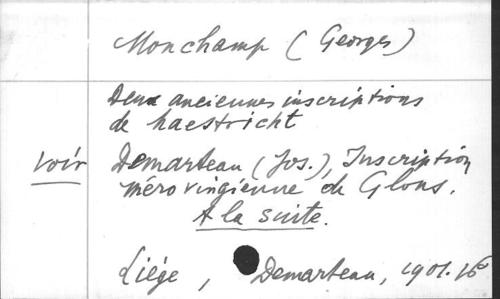 Monchamp (Georges)
Deux anciennes inscriptions
de Maestricht
voir Demarteau (Jos.), Inscription
mérovingienne de Glons.
A la suite.
Liége, Demarteau, 1901. 16°